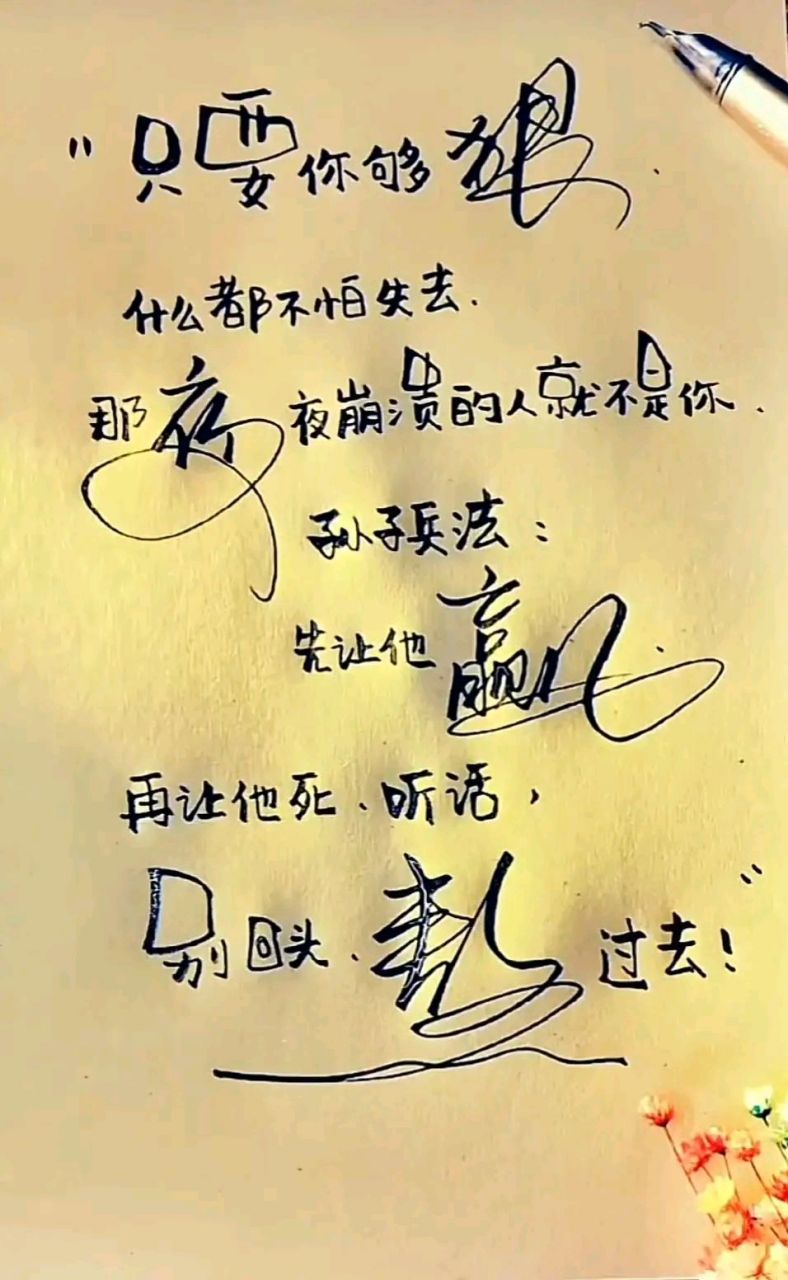 "只要你够狠.
什么都不怕失去.
那夜夜崩溃的人就不是你.
孙子兵法:
先让他赢.
再让他死.听话,
别回头.熬过去!"